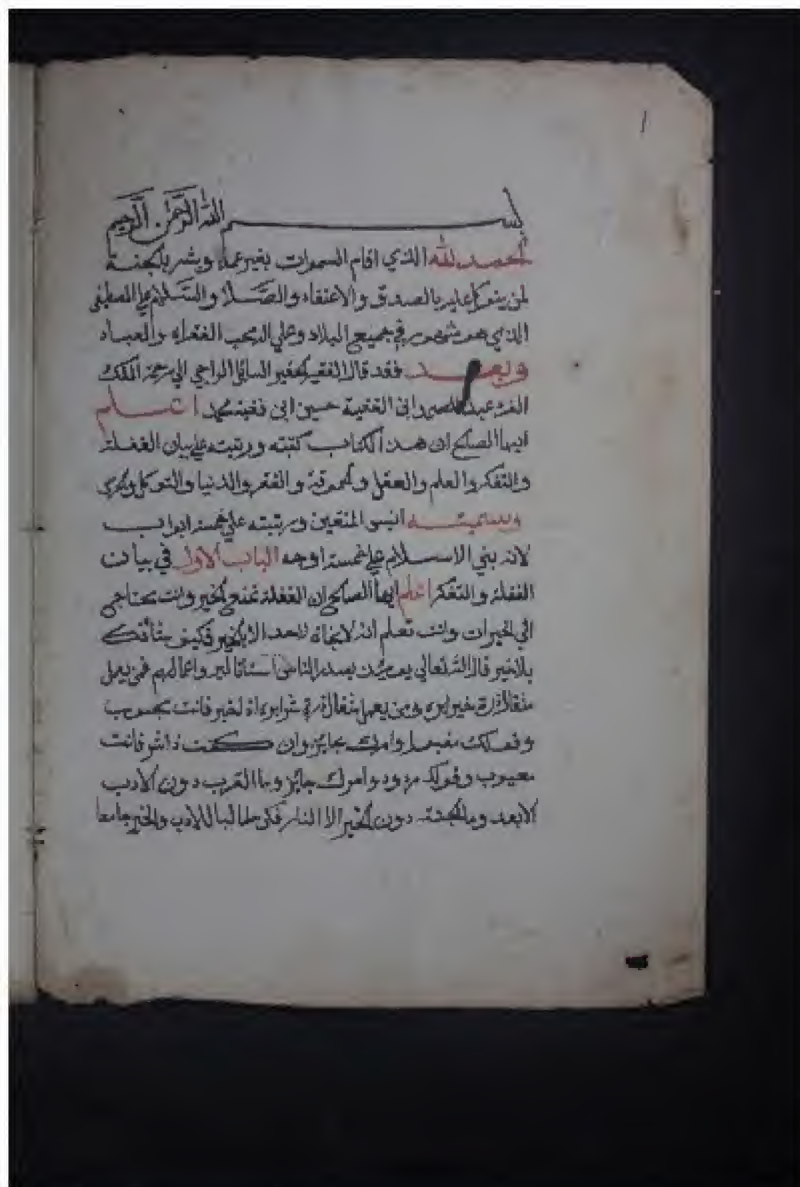 ١
بسم الله الرحمن الرحيم
الحمد لله الذي اقام السموات بغير عماد وبشر بالجنة
لمن يتوكل عليه بالصدق والاعتقاد والصلاة والسلام على المصطفى
الذي هو مشهور في جميع البلاد وعلى اله محب الفقراء والعباد
وبعد فقد قال الفقير الحقير السائل الراجي الى رحمة الملك
عبد الصمد ابن الفقيه حسين ابن فقيه محمد اعلم
ايها الصالح ان هذا الكتاب كتبته ورتبته على بيان الغفلة
والتفكر والعلم والعقل والفقر والدنيا والتوكل
وسميته انيس المتقين ورتبته على خمسة ابواب
لانه بني الاسلام على خمسة اوجه الباب الاول في بيان
الغفلة والتفكر اعلم ايها الصالح ان الغفلة تمنع الخير وانت محتاج
الى الخيرات وانت تعلم انه لا نجاة لاحد الا بالخير فكيف
بلا خير قال الله تعالى يومئذ يصدر الناس اشتاتا ليروا اعمالهم فمن يعمل
مثقال ذرة خيرا يره ومن يعمل مثقال ذرة شرا يره لخير فانت محبوب
وقولك مقبول وامرك جائز وان كنت ذا شر فانت
معيوب وقولك مردود وامرك جائز وما القرب دون الادب
الا بعد وما الجنة دون الخير الا النار فكن طالبا للادب والخير جامعا